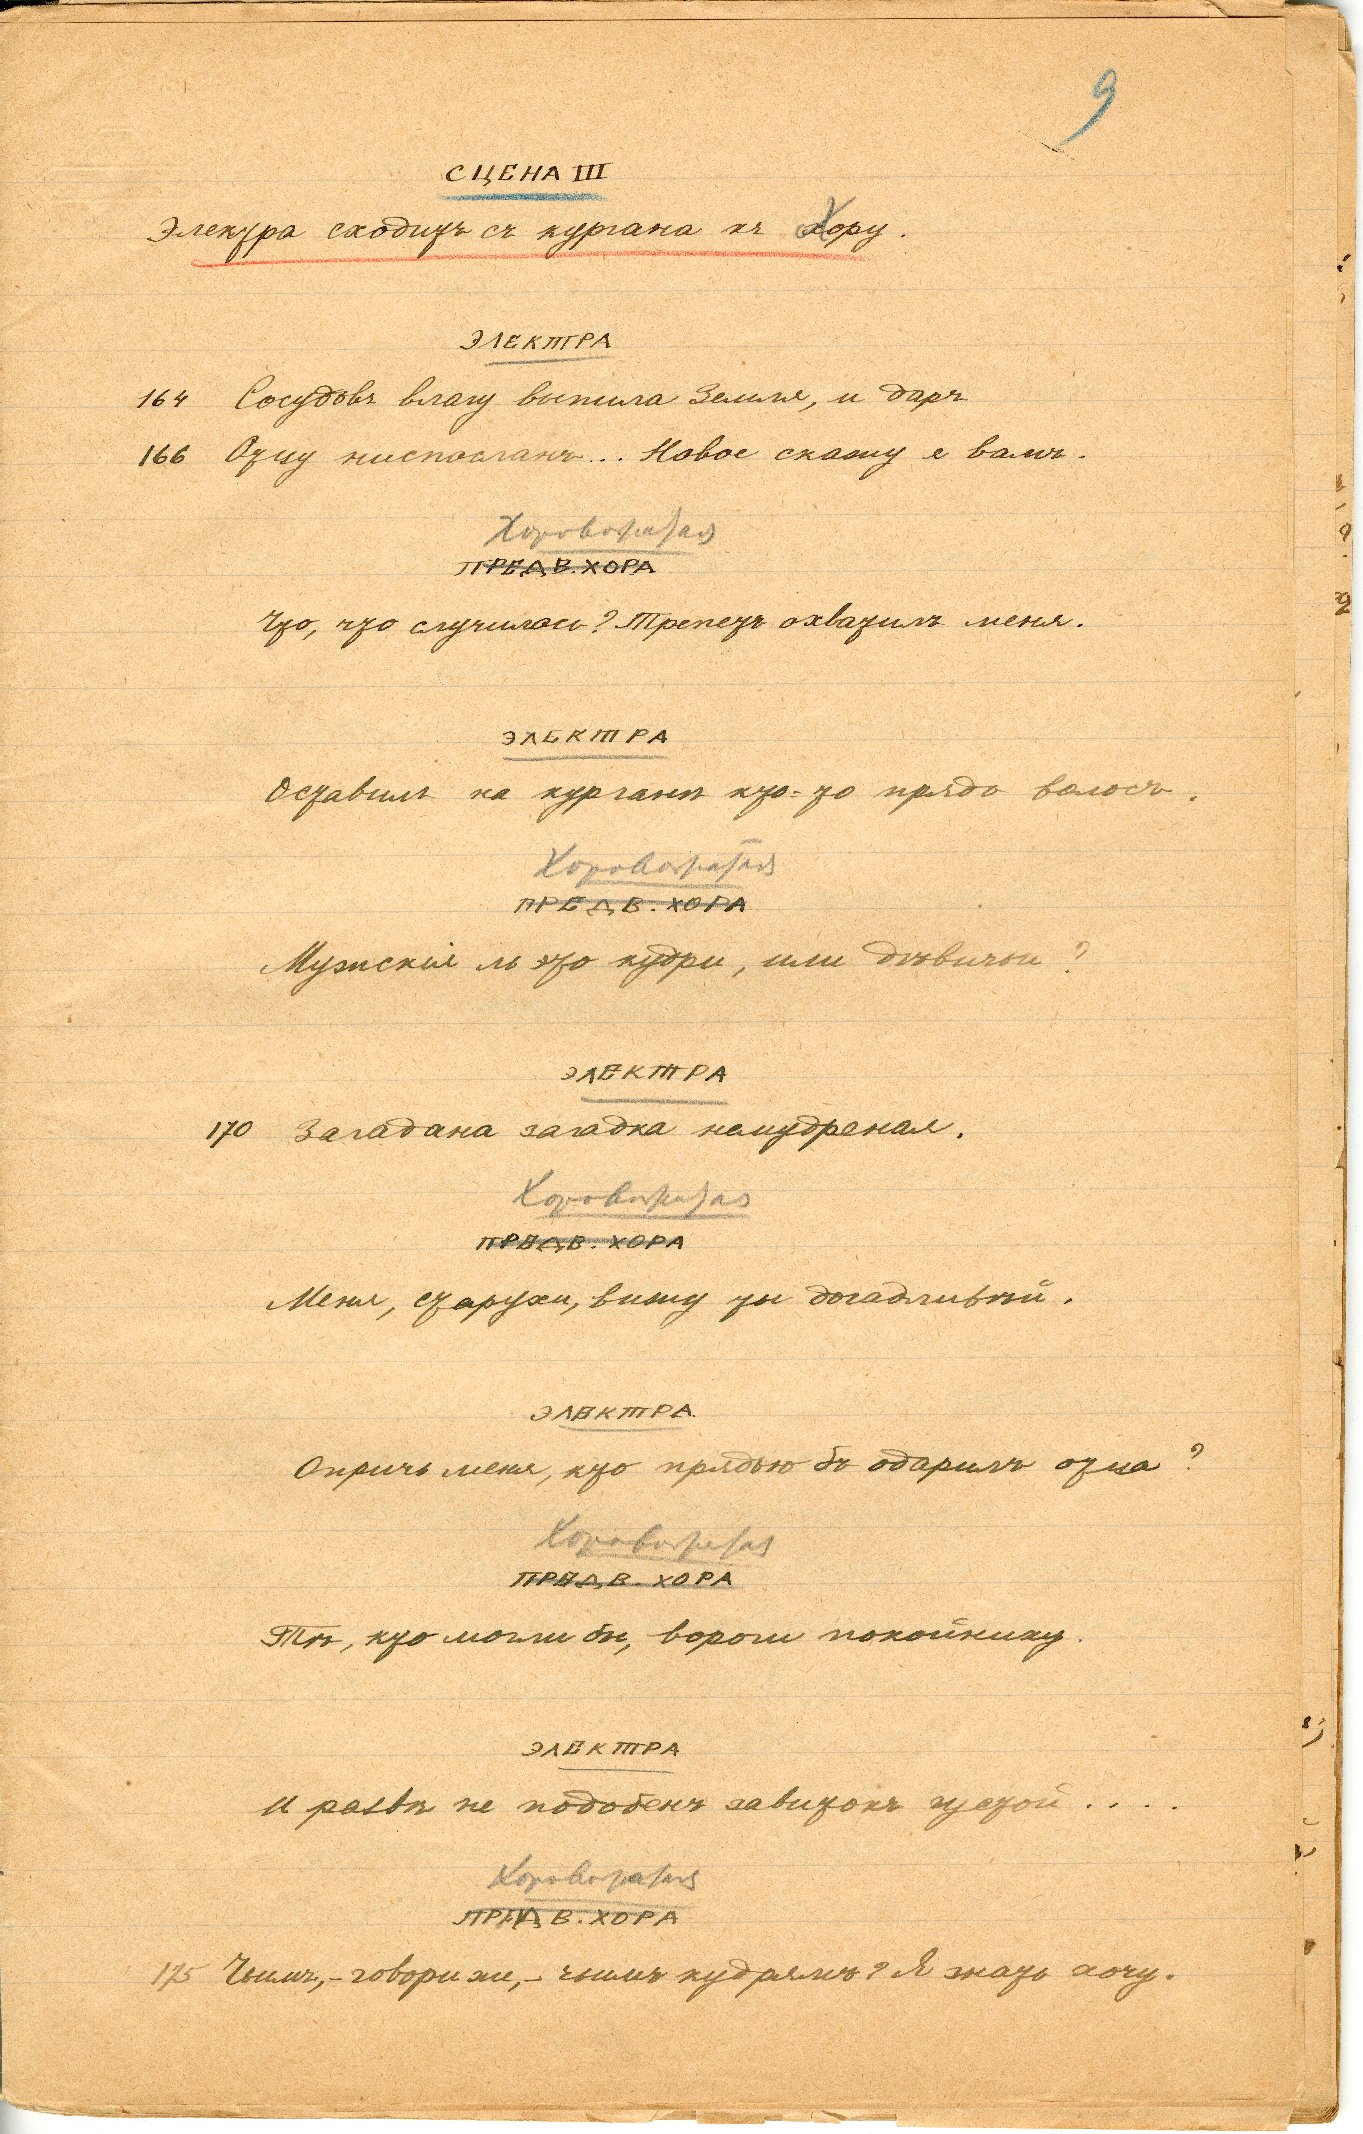 9
СЦЕНА III
Электра сходитъ съ кургана къ Хору.
ЭЛЕКТРА
164 Сосудовъ влагу выпила Земля, и даръ
166 Отцу ниспосланъ... Новое скажу я вамъ.
Хоровожатая
ПРЕДВ. ХОРА
Что, что случилось? Трепетъ охватилъ меня.
ЭЛЕКТРА
Оставилъ на курганѣ кто-то прядь волосъ.
Хоровожатая
ПРЕДВ. ХОРА
Мужскія ль это кудри, или дѣвичьи?
ЭЛЕКТРА
170 Загадана загадка немудреная.
Хоровожатая
ПРЕДВ. ХОРА
Меня, старухи, вижу ты догадливѣй.
ЭЛЕКТРА
Опричь меня, кто прядью бъ одарилъ отца?
Хоровожатая
ПРЕДВ. ХОРА
Тѣ, кто могли бы, вороги покойнику.
ЭЛЕКТРА
И развѣ не подобенъ завитокъ густой....
Хоровожатая
ПРЕДВ. ХОРА
175 Чьимъ,-говори же,-чьимъ кудрямъ? Я знать хочу.